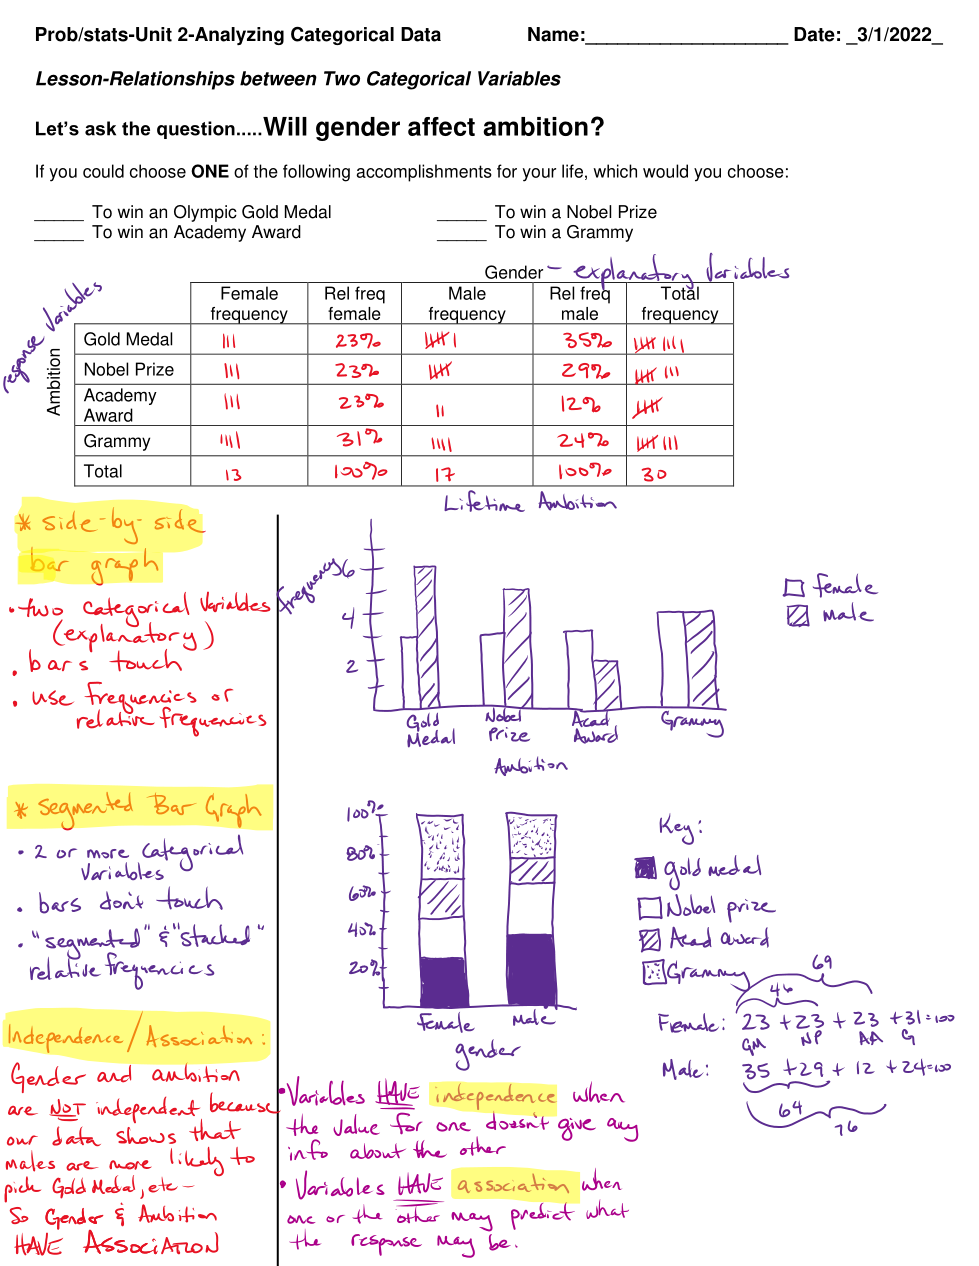 Prob/stats-Unit 2-Analyzing Categorical Data Name:___________________ Date: _3/1/2022_
Lesson-Relationships between Two Categorical Variables
Let's ask the question.....Will gender affect ambition?
If you could choose ONE of the following accomplishments for your life, which would you choose:
_____ To win an Olympic Gold Medal _____ To win a Nobel Prize
_____ To win an Academy Award _____ To win a Grammy
Gender - explanatory Variables
response Variables
Ambition
Female frequency Rel freq female Male frequency Rel freq male Total frequency
Gold Medal 23% 35%
Nobel Prize 23% 29%
Academy Award 23% 12%
Grammy 31% 24%
Total 13 100% 17 100% 30
Lifetime Ambition
* side-by-side
bar graph
• two categorical Variables
(explanatory)
• bars touch
• use frequencies or
relative frequencies
frequency
6
4
2
Gold Medal
Nobel Prize
Acad Award
Grammy
Ambition
female
male
* Segmented Bar Graph
• 2 or more categorical
Variables
• bars don't touch
• "segmented" & "stacked"
relative frequencies
100%
80%
60%
40%
20%
female Male
gender
Key:
gold medal
Nobel prize
Acad award
Grammy
69
46
Female: 23 + 23 + 23 + 31 = 100
GM NP AA G
Male: 35 + 29 + 12 + 24 = 100
64
76
Independence/Association:
Gender and ambition
are NOT independent because
our data shows that
males are more likely to
pick Gold Medal, etc -
So Gender & Ambition
HAVE ASSOCIATION
• Variables HAVE independence when
the value for one doesn't give any
info about the other
• Variables HAVE association when
one or the other may predict what
the response may be.